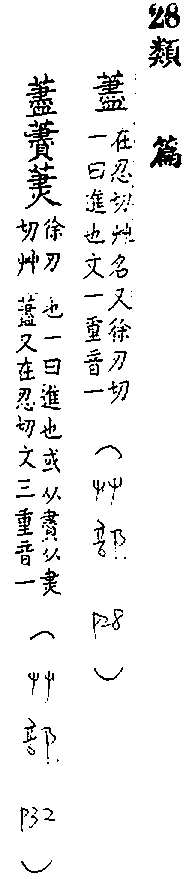 28類 篇
藎 在忍切艸名又徐刃切
一曰進也文一重音一 (艸部 P28)
藎藚䒞 徐刃切艸
也一曰進也或从𧷨从㶳
藎又在忍切文三重音一 (艸部 P32)